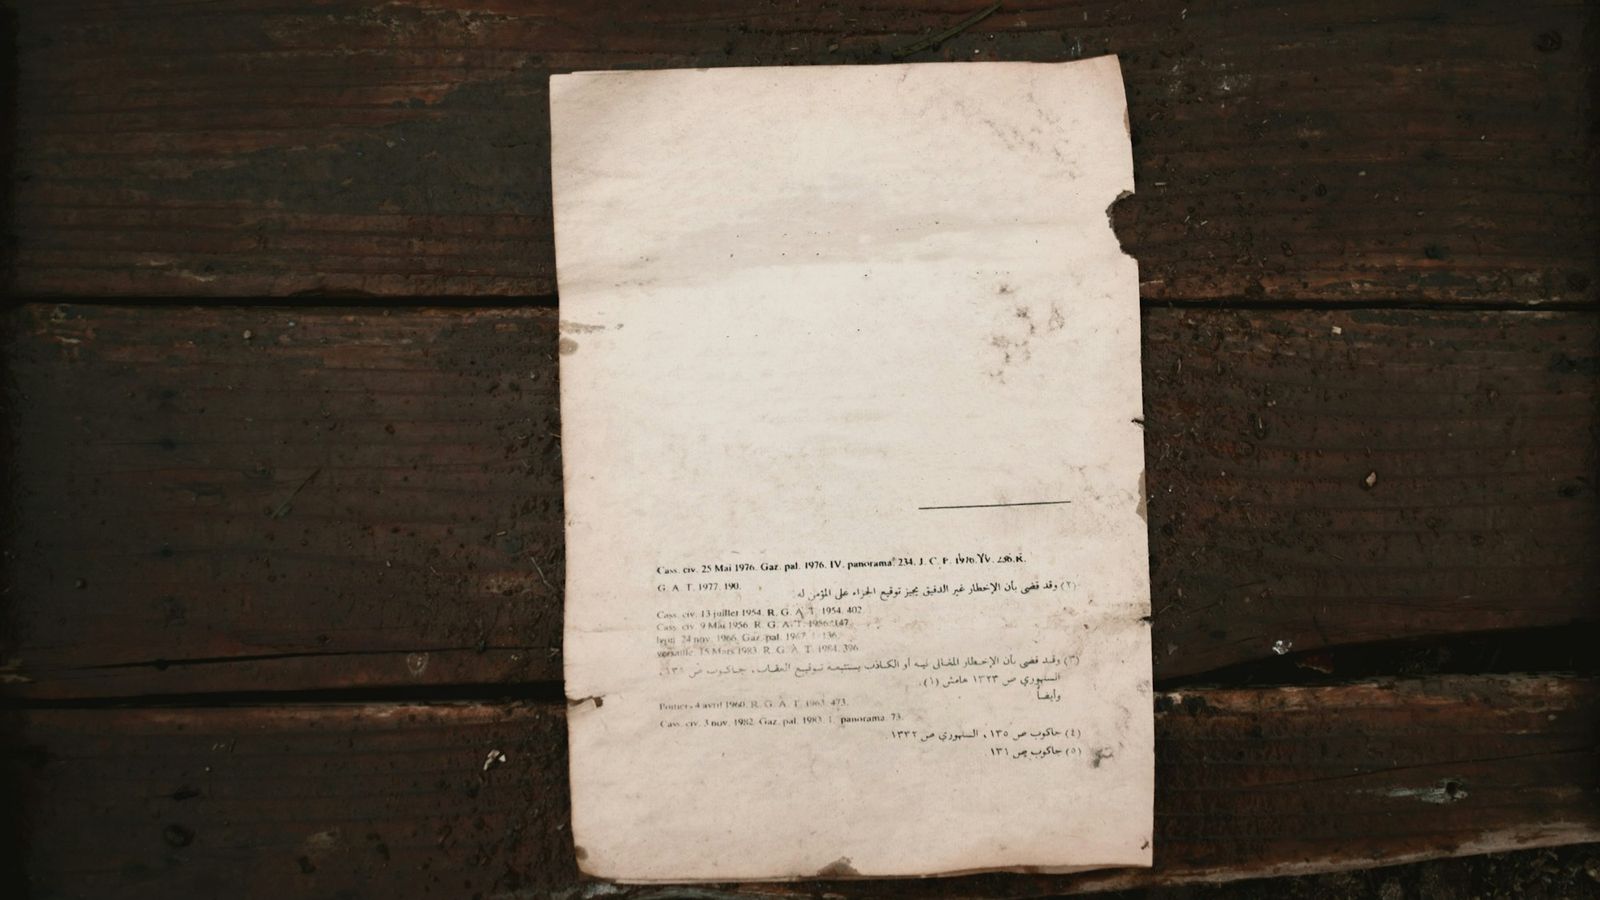 Cass. civ. 25 Mai 1976. Gaz. pal. 1976. IV. panorama. 234. J. C. P. 1976. IV. 236.R.
G. A. T. 1977. 190.
(٢) وقد قضى بأن الإخطار غير الدقيق يجيز توقيع الجزاء على المؤمن له
Cass. civ. 13 juillet 1954. R. G. A. T. 1954. 402
Cass. civ. 9 Mai 1956. R. G. A. T. 1956. 147.
24 nov. 1966. Gaz. pal. 1967. 1. 136.
versaille. 15 Mars 1983. R. G. A. T. 1984. 396
(٣) وقد قضى بأن الإخطار المغالى فيه أو الكاذب يستتبعه توقيع العقاب. جاكوب ص ١٣٥.
السنهوري ص ١٣٢٣ هامش (١).
وأيضاً
Poitier. 4 avril 1960. R. G. A. T. 1963. 473.
Cass. civ. 3 nov. 1982. Gaz. pal. 1983. 1. panorama. 73.
(٤) جاكوب ص ١٣٥، السنهوري ص ١٣٣٢.
(٥) جاكوب ص ١٣١.